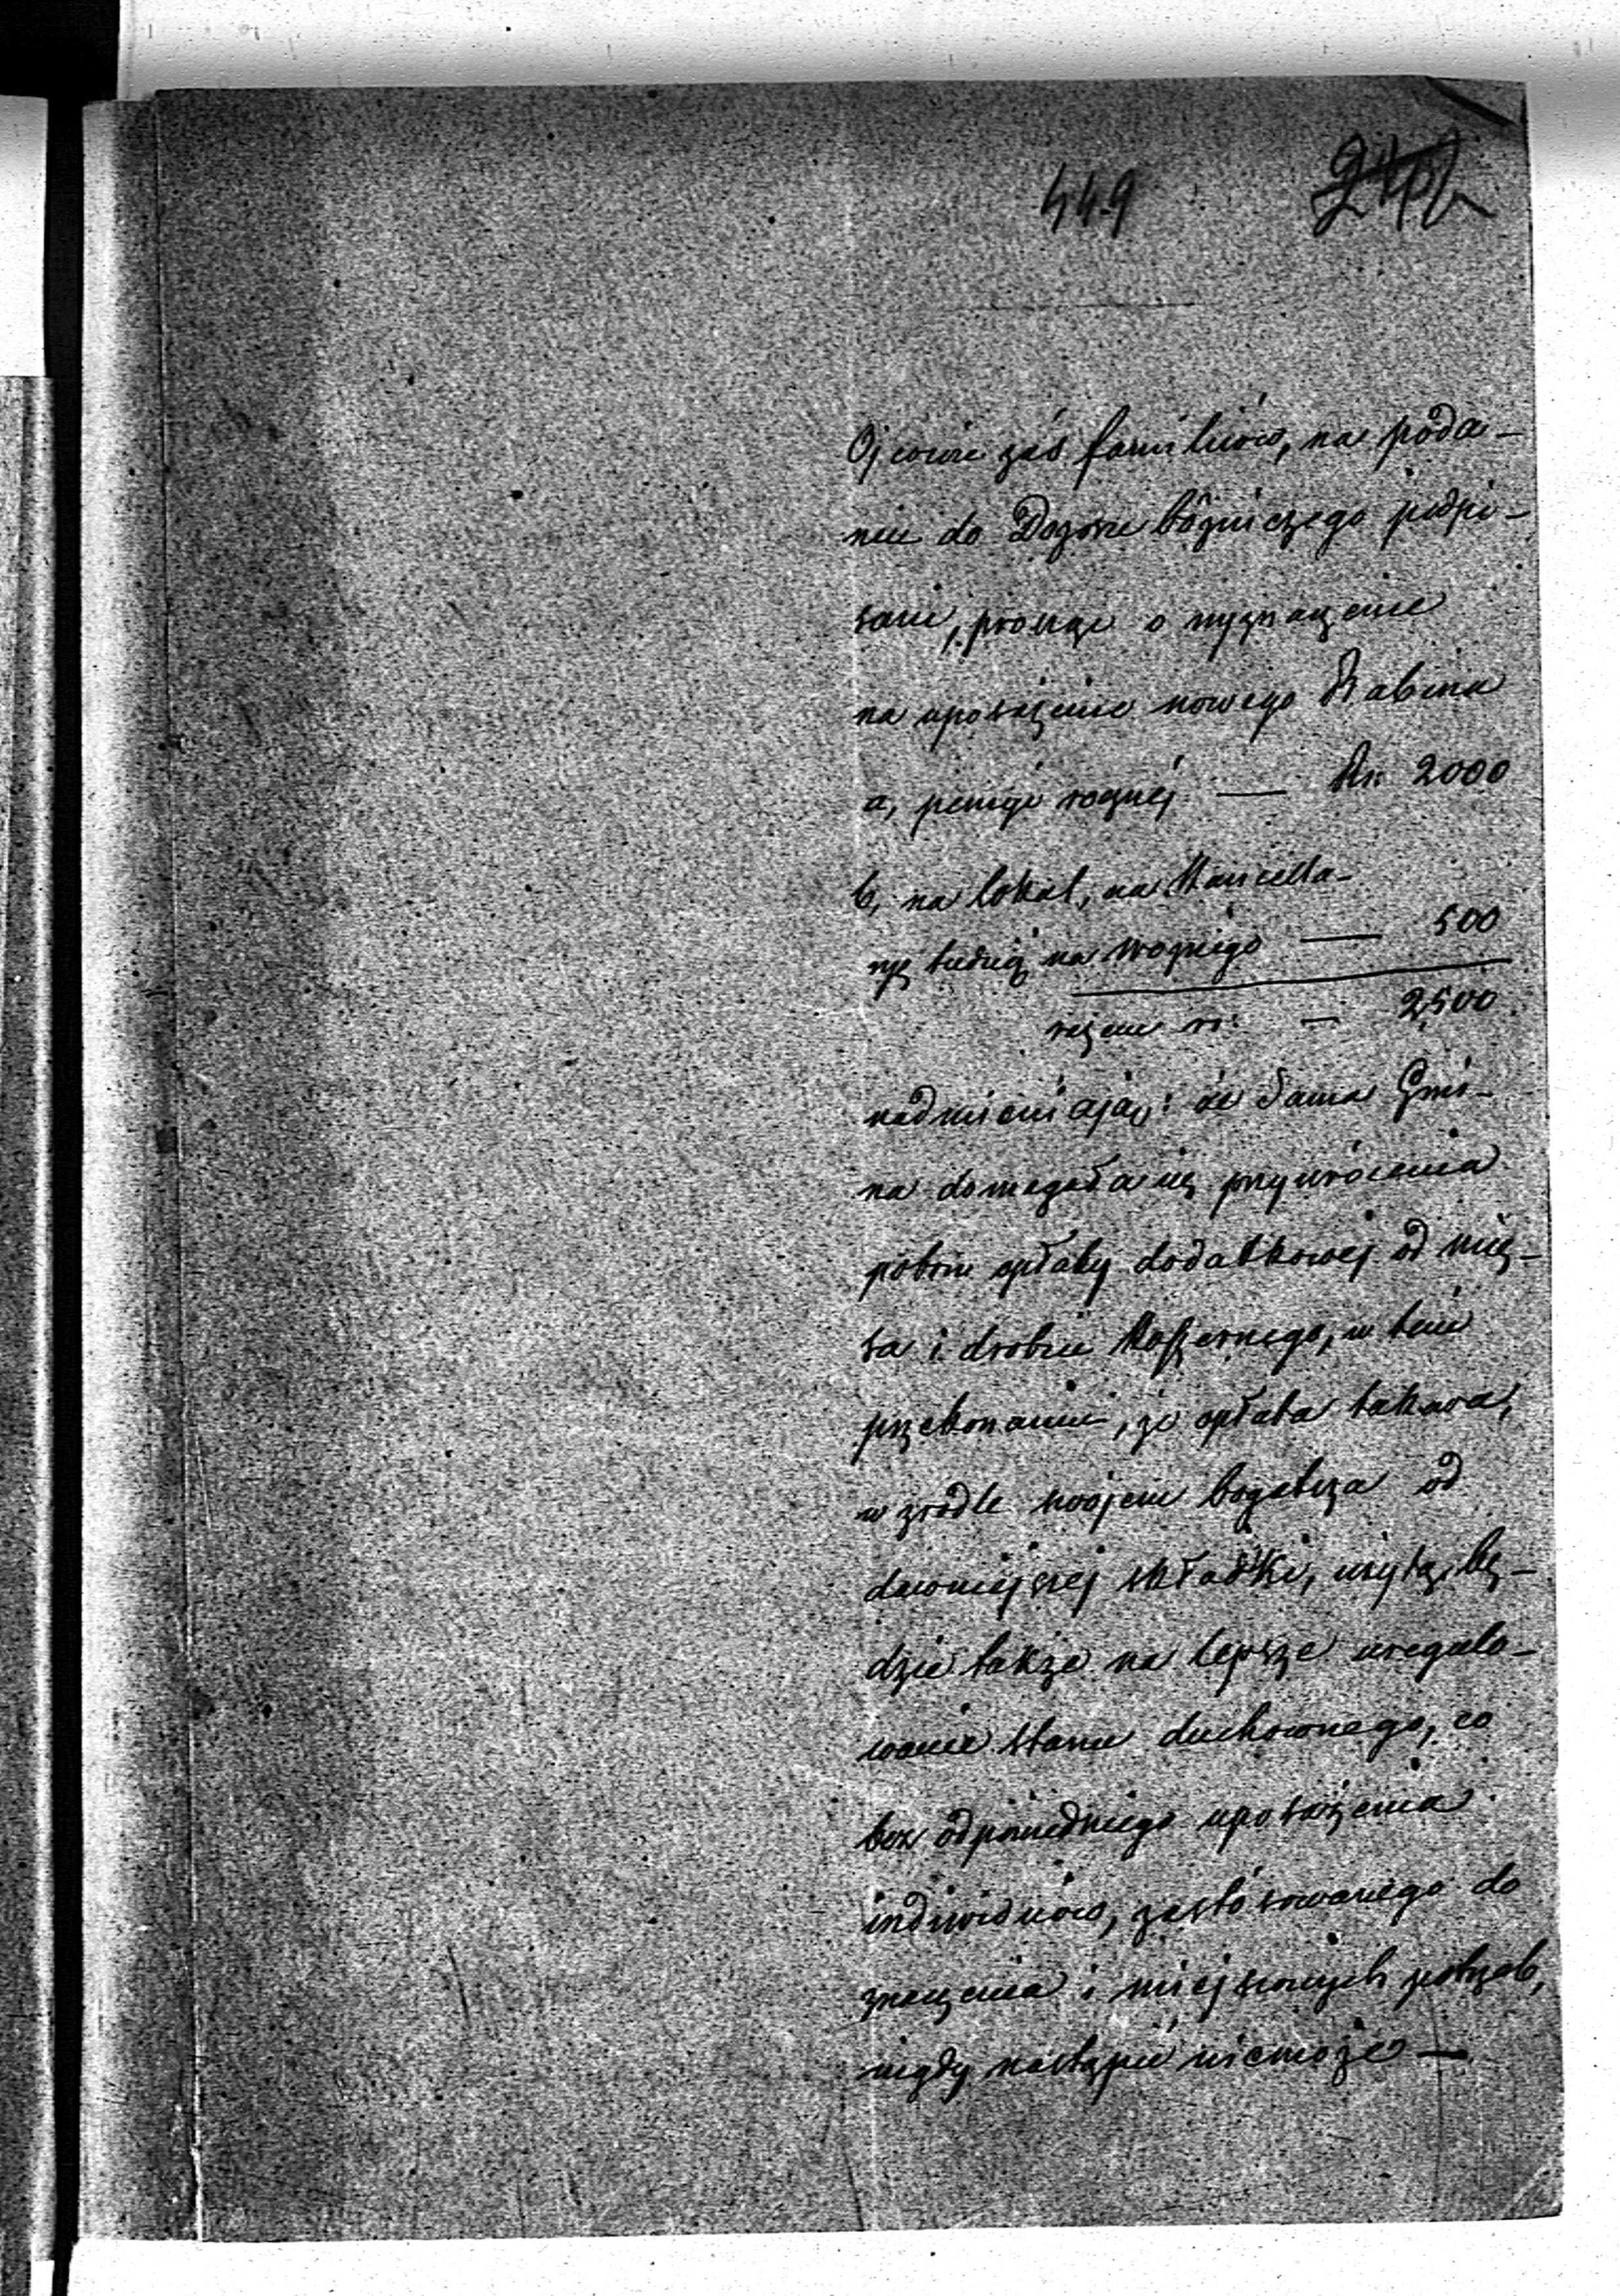 449
Ojcowie zaś familiów, na poda-
niu do Dozoru bóżniczego podpi-
sani, proszą o wyznaczenie
na uposażenie nowego Rabina
a, pensyi rocznéj — Rs: 2000
b, na lokal, na Kancella-
ryę tudzież na woznego — 500
razem rs: — 2,500
nadmieniając: że sama Gmi-
na domagała się przywrócenia
poboru opłaty dodatkowej od mię-
sa i drobiu koszernego, w tem
przekonaniu, że opłata takowa,
w zrodle swojem bogatsza od
dawniejszej składki, użytą bę-
dzie także na lepsze uregulo-
wanie stanu duchownego, co
bez odpowiedniego uposażenia
indiwiduów, zastósowanego do
znaczenia i miejscowych potrzeb,
nigdy nastąpić niemoże —